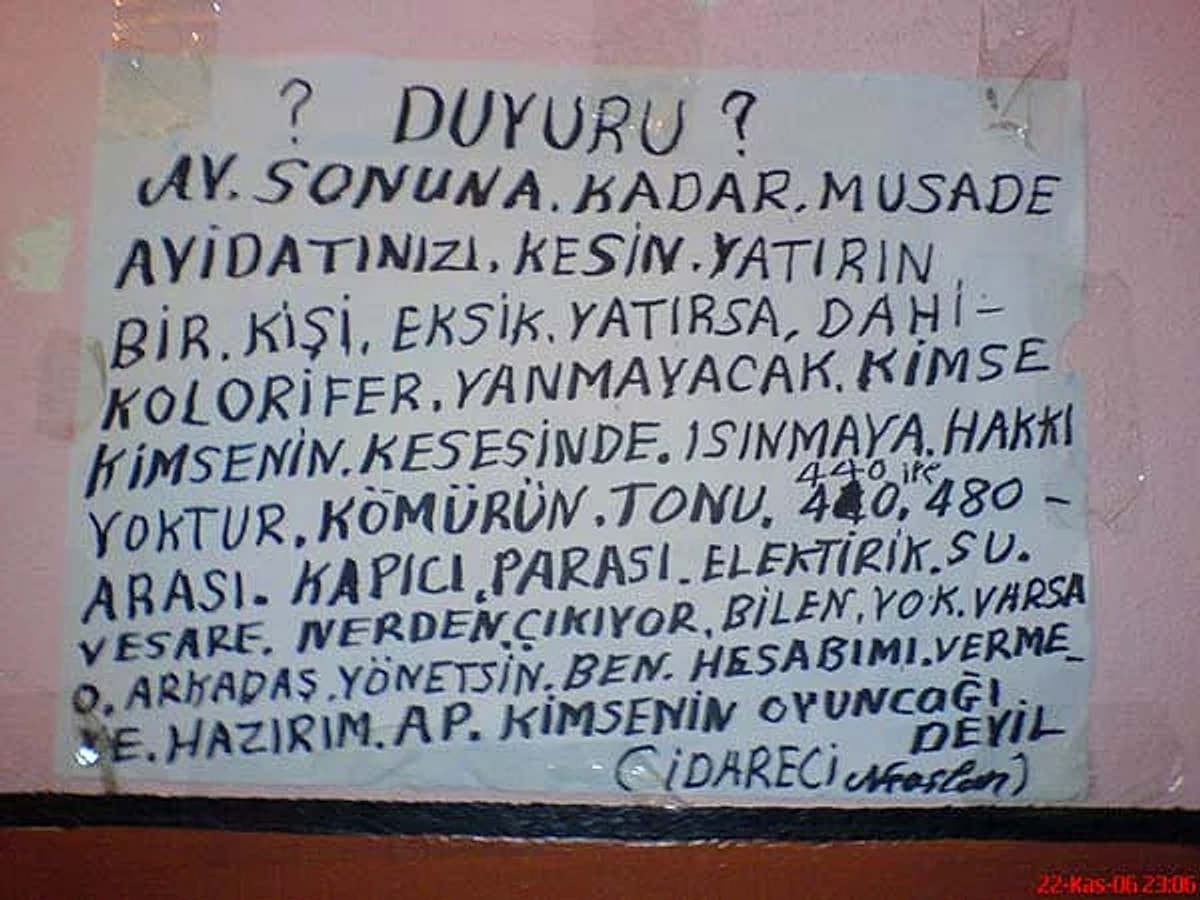 ? DUYURU ?
AY. SONUNA. KADAR. MUSADE
AYİDATINIZI. KESİN. YATIRIN
BİR. KİŞİ. EKSİK. YATIRSA, DAHİ-
KOLORİFER. YANMAYACAK. KİMSE
KİMSENİN. KESESİNDE. ISINMAYA. HAKKI
440 ile
YOKTUR. KÖMÜRÜN. TONU. 440. 480 -
ARASI. KAPICI. PARASI. ELEKTİRİK. SU.
VESARE. NERDEN. ÇIKIYOR. BİLEN. YOK. VARSA
O. ARKADAŞ. YÖNETSİN. BEN. HESABIMI. VERME_
YE. HAZIRIM. AP. KİMSENİN OYUNCAĞI.
DEYİL
(İDARECİ )
22-Kas-06 23:06